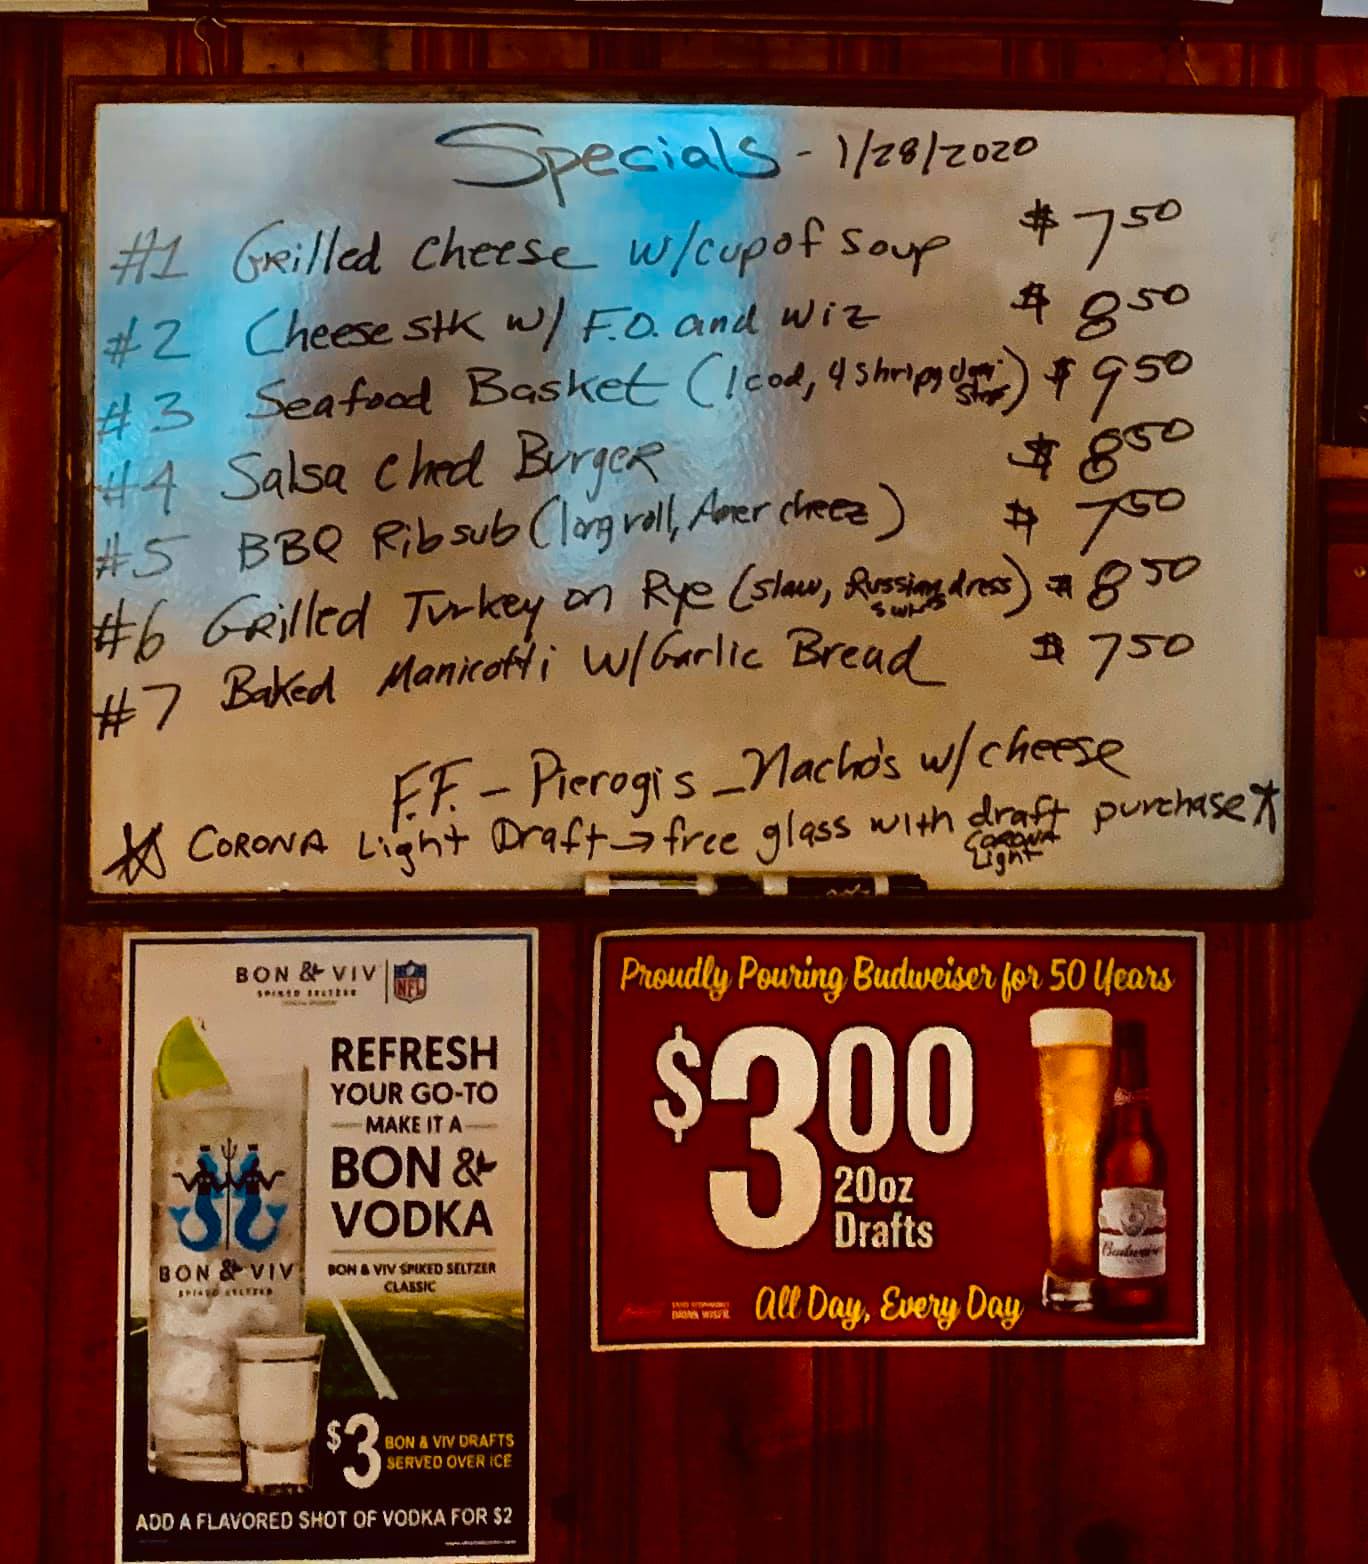 Specials - 1/28/2020
#1 Grilled cheese w/cup of soup $ 7 50
#2 Cheese stk w/ F.O. and wiz $ 8 50
#3 Seafood Basket (1 cod, 4 shrip, clam) $ 9 50
#4 Salsa Ched Burger $ 8 50
#5 BBQ Rib sub (long roll, Amer cheez) $ 7 50
#6 Grilled Turkey on Rye (slaw, Russian dress) $ 8 50
swiss
#7 Baked Manicotti w/Garlic Bread $ 7 50
F.F. - Pierogis - Nacho's w/ cheese
CORONA Light Draft → free glass with draft purchase
CORONA
Light
BON & VIV NFL
SPIKED SELTZER
REFRESH
YOUR GO-TO
MAKE IT A
BON &
VODKA
BON & VIV SPIKED SELTZER
CLASSIC
BON & VIV
SPIKED SELTZER
$3 BON & VIV DRAFTS
SERVED OVER ICE
ADD A FLAVORED SHOT OF VODKA FOR $2
Proudly Pouring Budweiser for 50 Years
$3 00
20oz
Drafts
Budweiser
All Day, Every Day